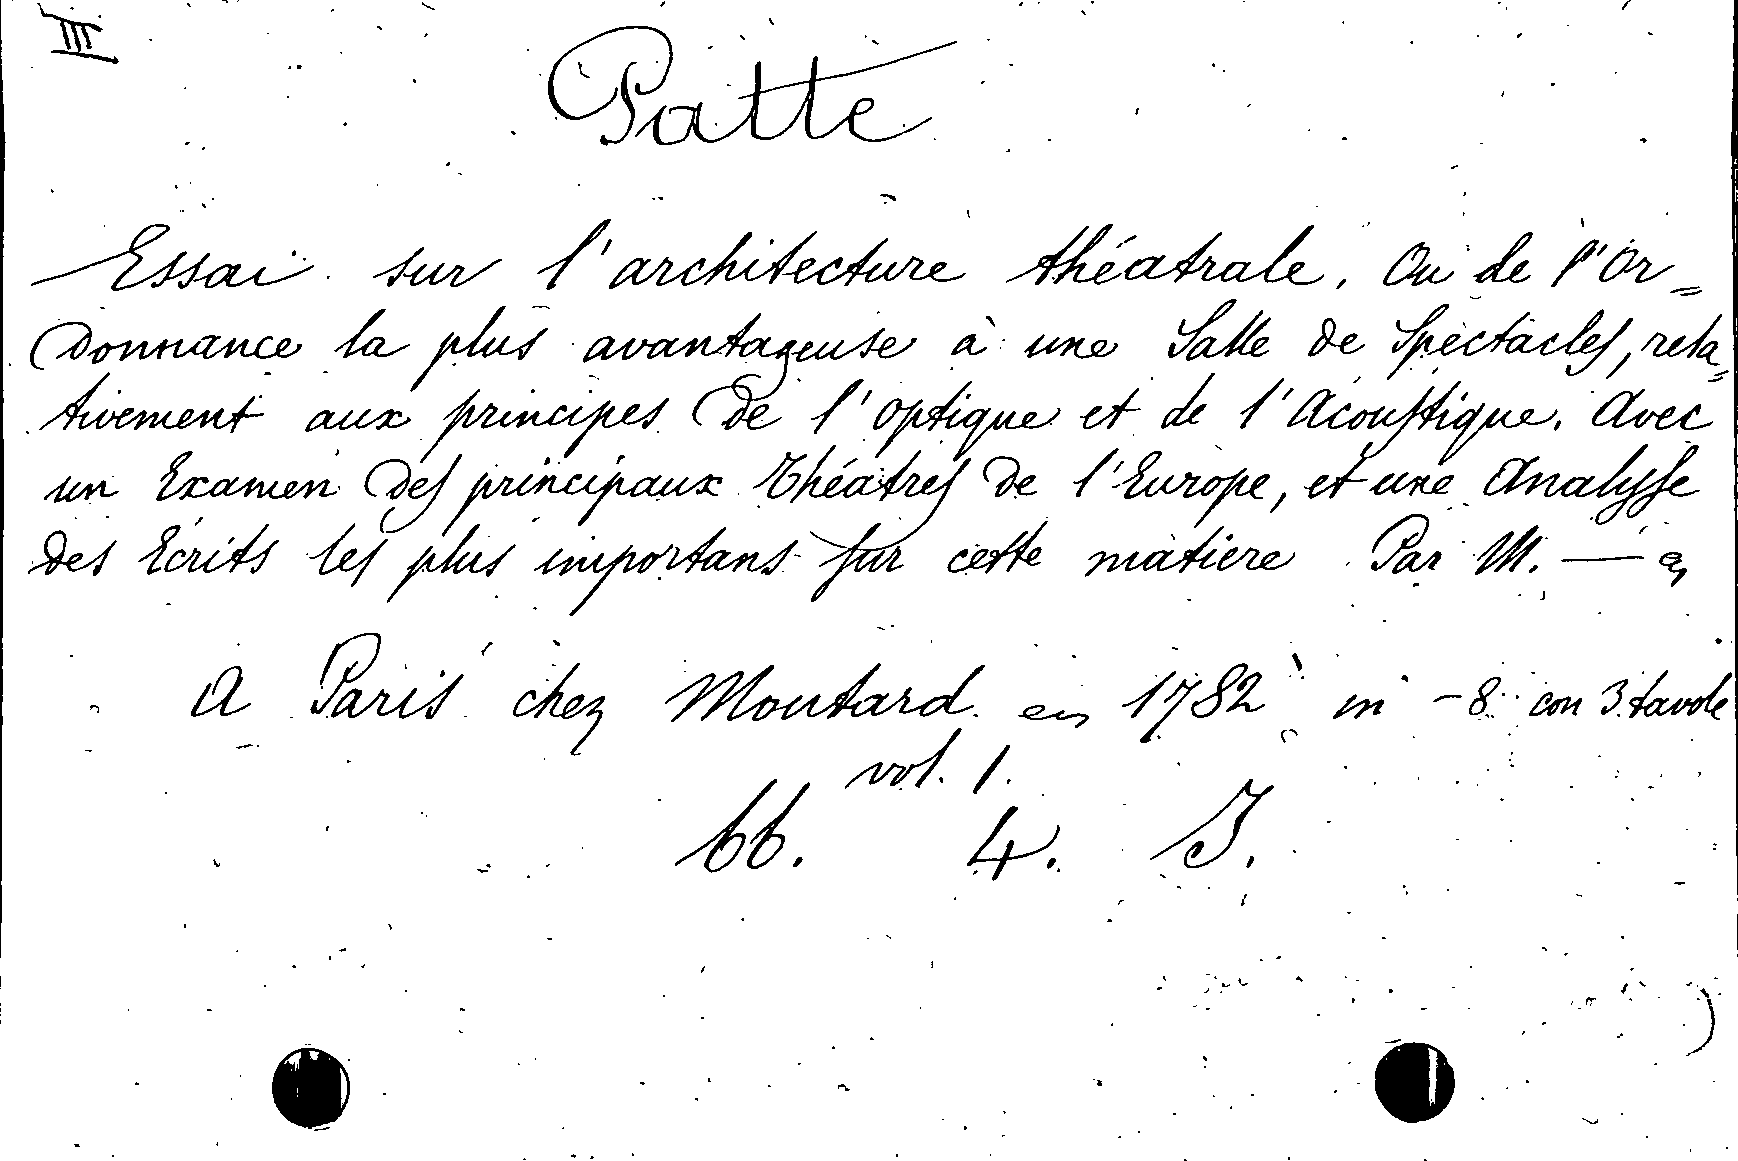 III
Patte
Essai sur l'architecture théatrale. Ou de l'Or=
donnance la plus avantageuse à une Salle de Spectacles, rela=
tivement aux principes de l'optique et de l'Acoustique. Avec
un Examen des principaux Théatres de l'Europe, et une Analysse
des Ecrits les plus importans sur cette matiere Par M. —
A Paris chez Moutard en 1782 in -8. con 3 tavole
vol. 1.
bb. 4. J.